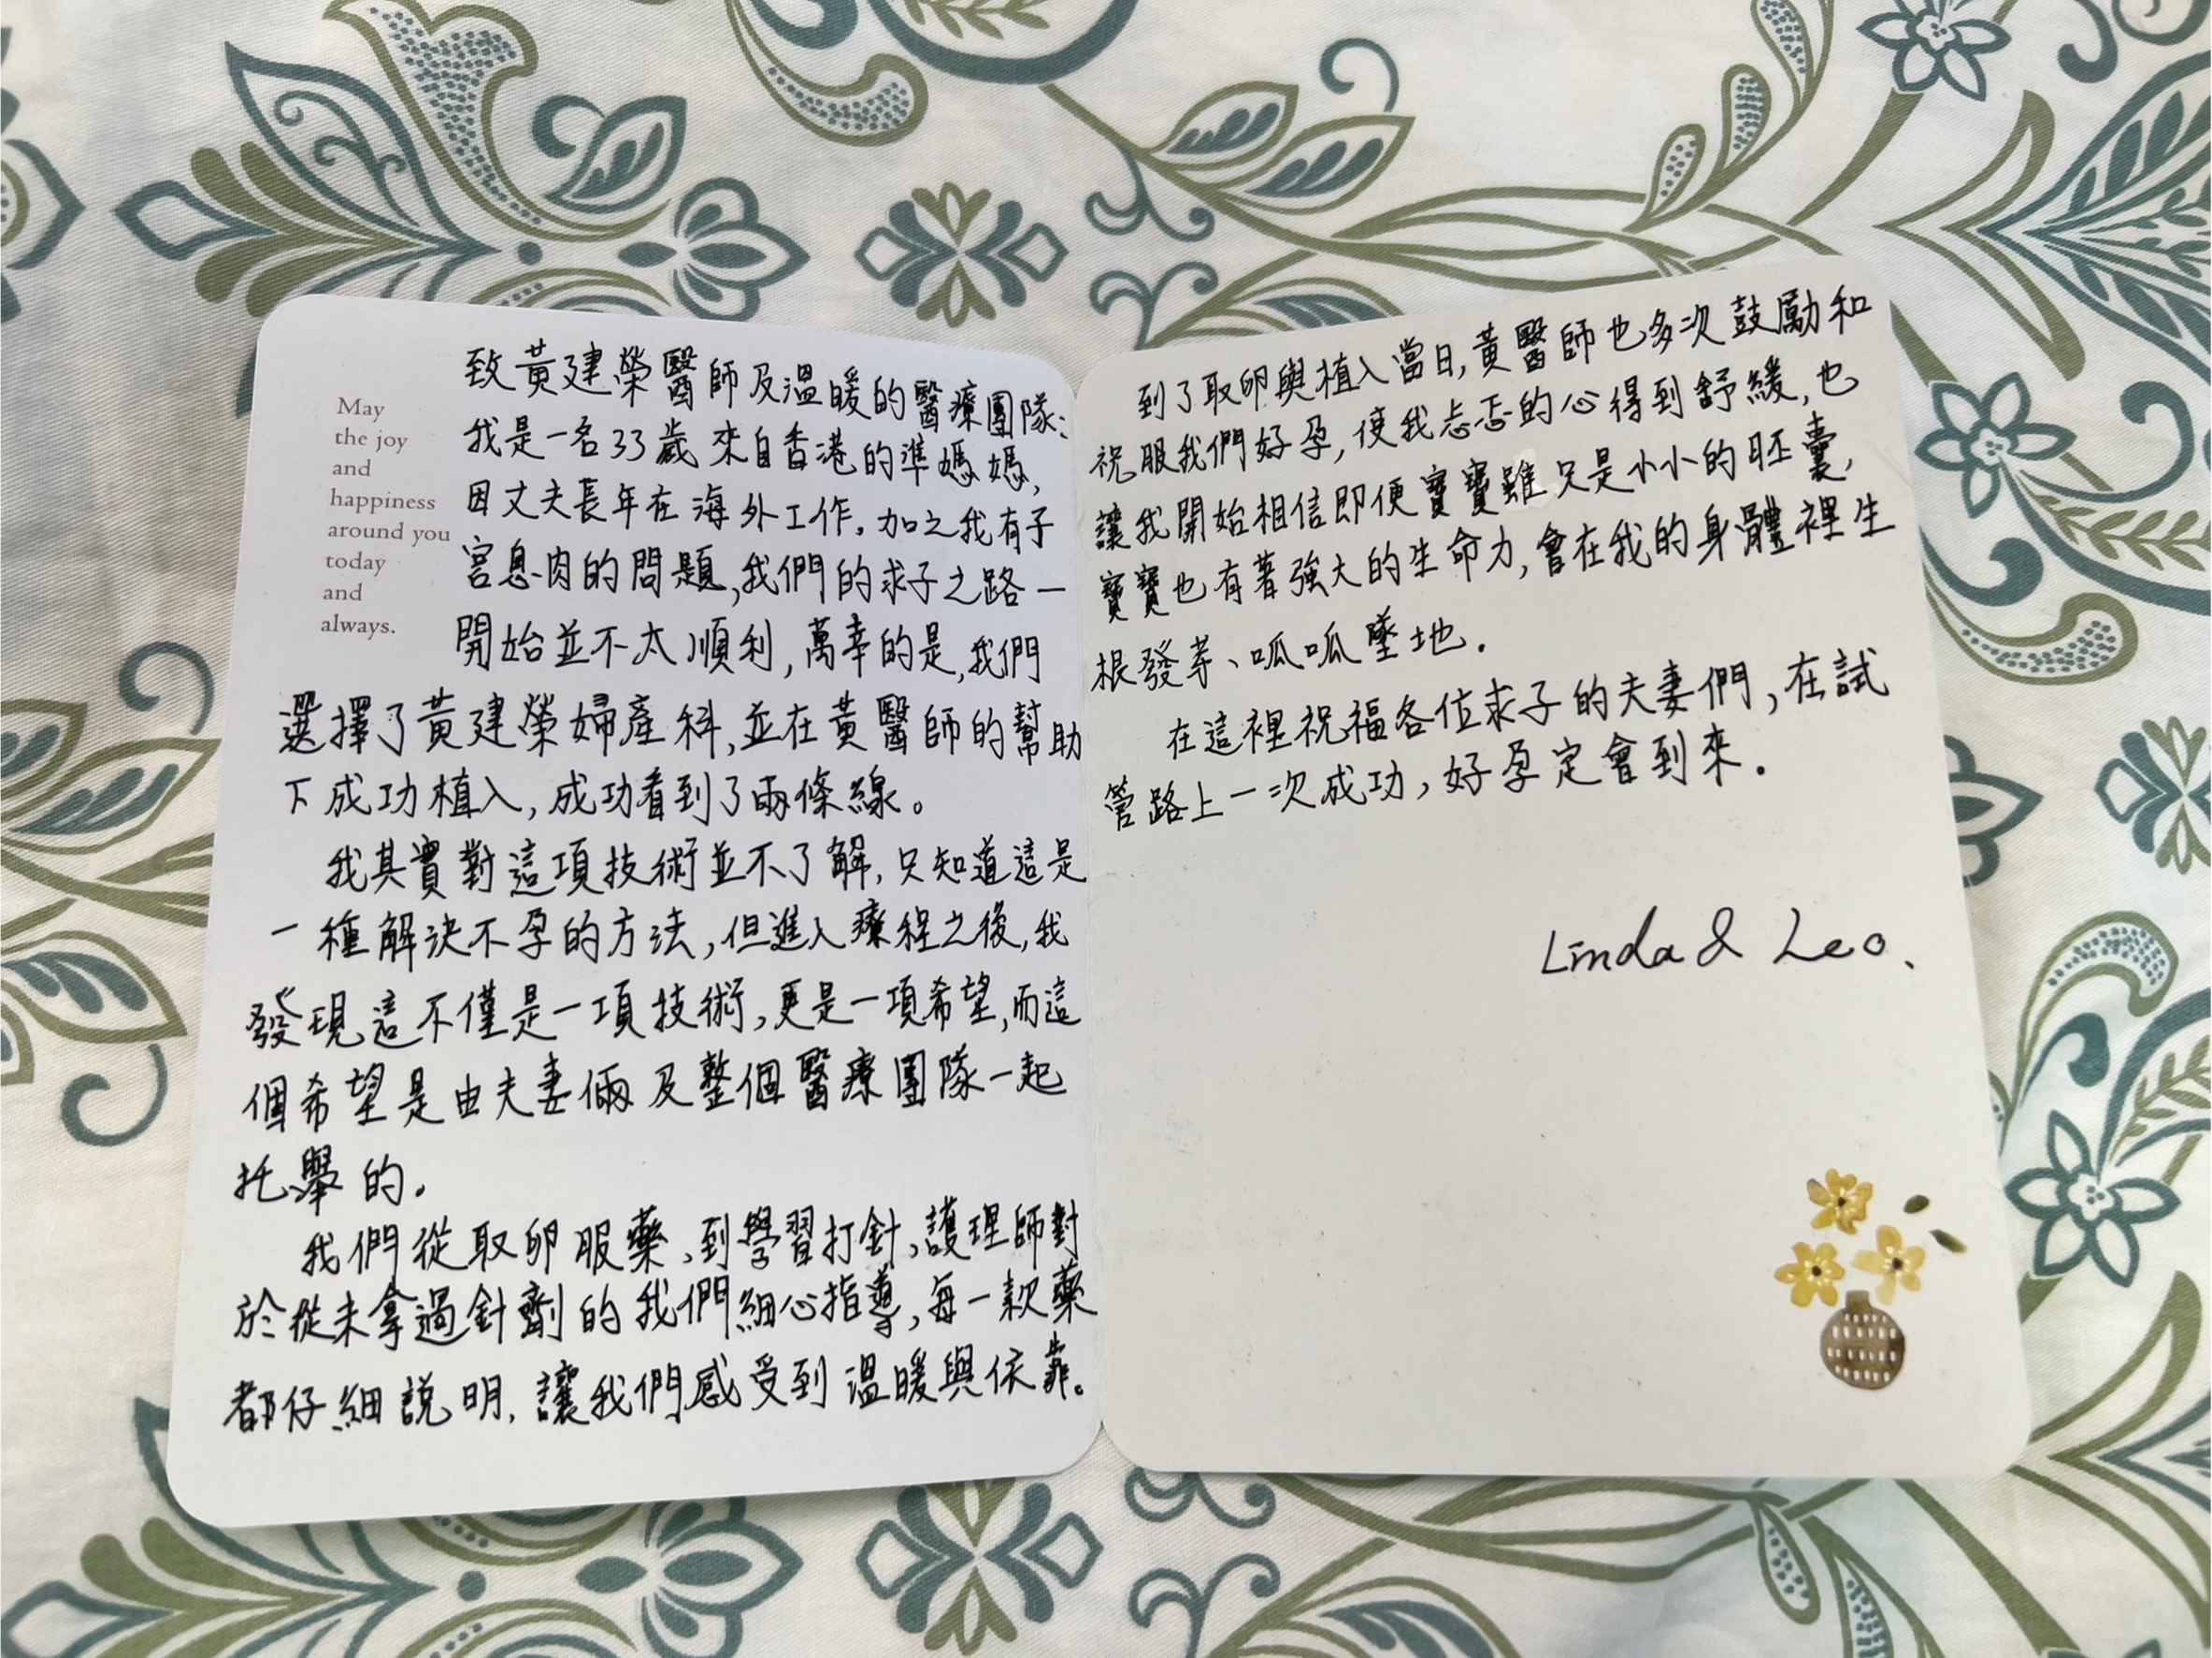 May
the joy
and
happiness
around you
today
and
always.
致黃建榮醫師及溫暖的醫療團隊：
我是一名33歲來自香港的準媽媽，
因丈夫長年在海外工作，加之我有子
宮息肉的問題，我們的求子之路一
開始並不太順利，萬幸的是，我們
選擇了黃建榮婦產科，並在黃醫師的幫助
下成功植入，成功看到了兩條線。
我其實對這項技術並不了解，只知道這是
一種解決不孕的方法，但進入療程之後，我
發現這不僅是一項技術，更是一項希望，而這
個希望是由夫妻倆及整個醫療團隊一起
托舉的。
我們從取卵服藥、到學習打針，護理師對
於從未拿過針劑的我們細心指導，每一款藥
都仔細說明，讓我們感受到溫暖與依靠。
到了取卵與植入當日，黃醫師也多次鼓勵和
祝服我們好孕，使我忐忑的心得到舒緩，也
讓我開始相信即便寶寶雖只是小小的胚囊，
寶寶也有著強大的生命力，會在我的身體裡生
根發芽、呱呱墜地．
在這裡祝福各位求子的夫妻們，在試
管路上一次成功，好孕定會到來．
Linda & Leo、